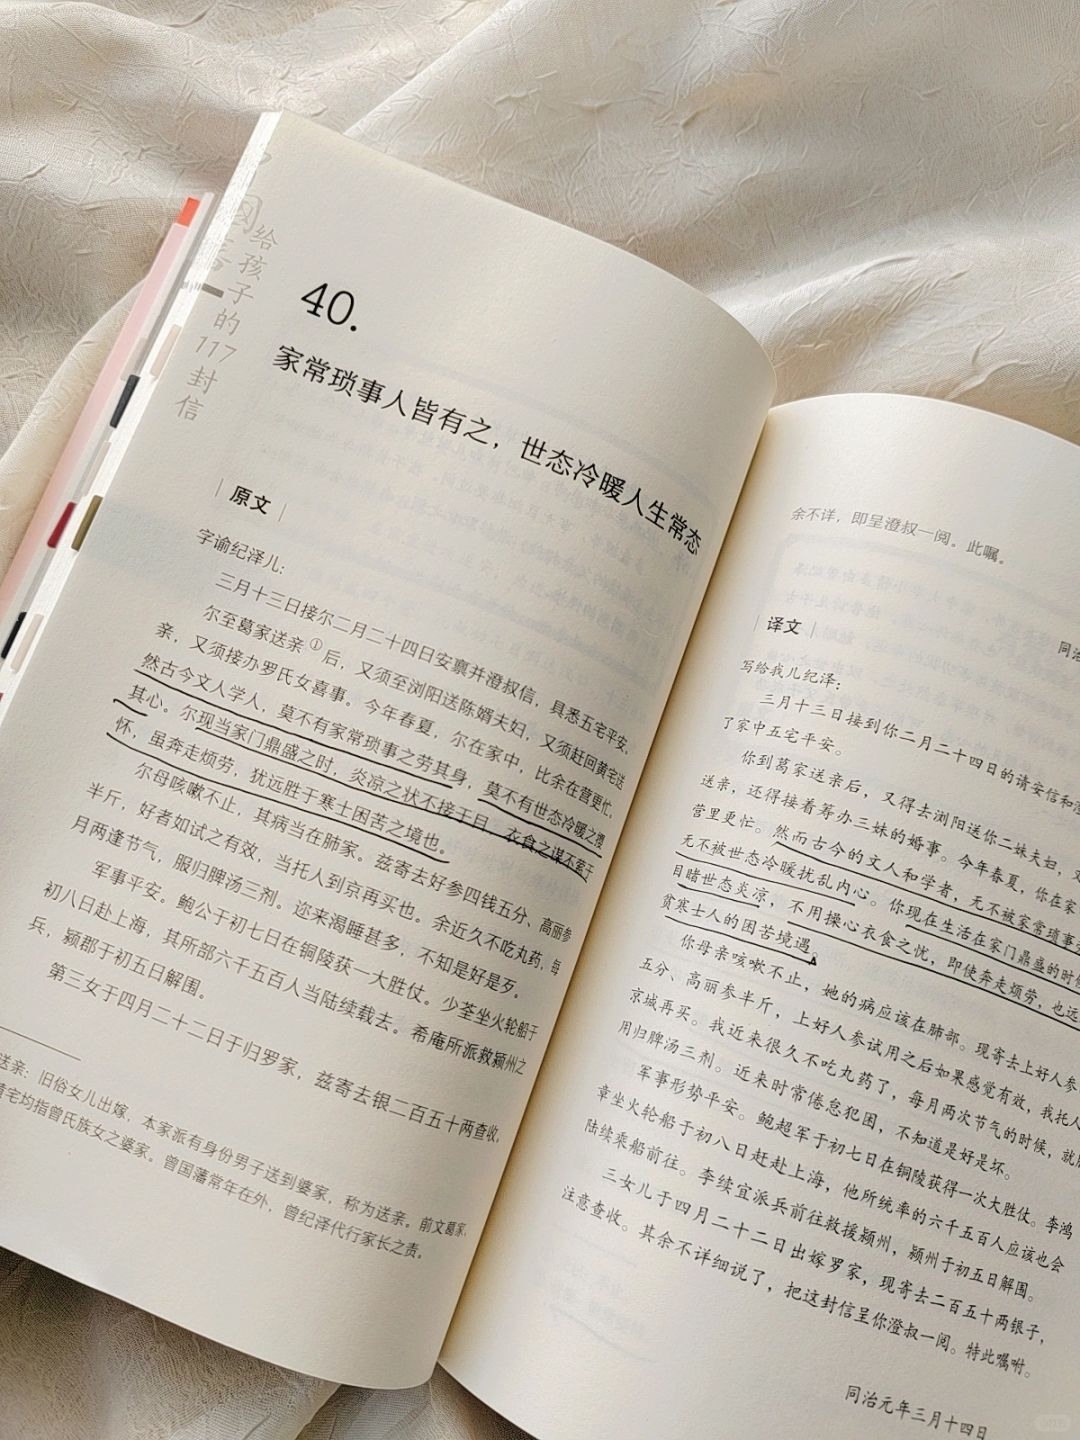 给孩子的117封信
40.
家常琐事人皆有之，世态冷暖人生常态
原文
字谕纪泽儿：
三月十三日接尔二月二十四日安禀并澄叔信，具悉五宅平安。
尔至葛家送亲①后，又须至浏阳送陈婿夫妇，又须赶回黄宅送
亲，又须接办罗氏女喜事。今年春夏，尔在家中，比余在营更忙。
然古今文人学人，莫不有家常琐事之劳其身，莫不有世态冷暖之撄
其心。尔现当家门鼎盛之时，炎凉之状不接于目，衣食之谋不萦于
怀，虽奔走烦劳，犹远胜于寒士困苦之境也。
尔母咳嗽不止，其病当在肺家。兹寄去好参四钱五分、高丽参
半斤，好者如试之有效，当托人到京再买也。余近久不吃丸药，每
月两逢节气，服归脾汤三剂。迩来渴睡甚多，不知是好是歹。
军事平安。鲍公于初七日在铜陵获一大胜仗。少荃坐火轮船于
初八日赴上海，其所部六千五百人当陆续载去。希庵所派救颍州之
兵，颍郡于初五日解围。
第三女于四月二十二日于归罗家，兹寄去银二百五十两查收，
送亲：旧俗女儿出嫁，本家派有身份男子送到婆家，称为送亲。前文葛家、
黄宅均指曾氏族女之婆家。曾国藩常年在外，曾纪泽代行家长之责。
余不详，即呈澄叔一阅。此嘱。
同治
译文
写给我儿纪泽：
三月十三日接到你二月二十四日的请安信和澄
了家中五宅平安。
你到葛家送亲后，又得去浏阳送你二妹夫妇，又
送亲，还得接着筹办三妹的婚事。今年春夏，你在家
营里更忙。然而古今的文人和学者，无不被家常琐事
无不被世态冷暖扰乱内心。你现在生活在家门鼎盛的时候
目睹世态炎凉，不用操心衣食之忧，即使奔走烦劳，也远
贫寒士人的困苦境遇。
你母亲咳嗽不止，她的病应该在肺部。现寄去上好人参
五分、高丽参半斤，上好人参试用之后如果感觉有效，我托人
京城再买。我近来很久不吃丸药了，每月两次节气的时候，就服
用归脾汤三剂。近来时常倦怠犯困，不知道是好是坏。
军事形势平安。鲍超军于初七日在铜陵获得一次大胜仗。李鸿
章坐火轮船于初八日赶赴上海，他所统率的六千五百人应该也会
陆续乘船前往。李续宜派兵前往救援颍州，颍州于初五日解围。
三女儿于四月二十二日出嫁罗家，现寄去二百五十两银子，
注意查收。其余不详细说了，把这封信呈你澄叔一阅。特此嘱咐。
同治元年三月十四日